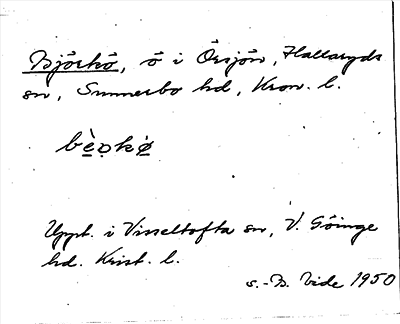 Björkö, ö i Örsjön, Hallaryds
sn, Sunnerbo hd, Kron. l.
bèrkö
Uppt. i Visseltofta sn, V. Göinge
hd. Krist. l.
S.-B. Vide 1950